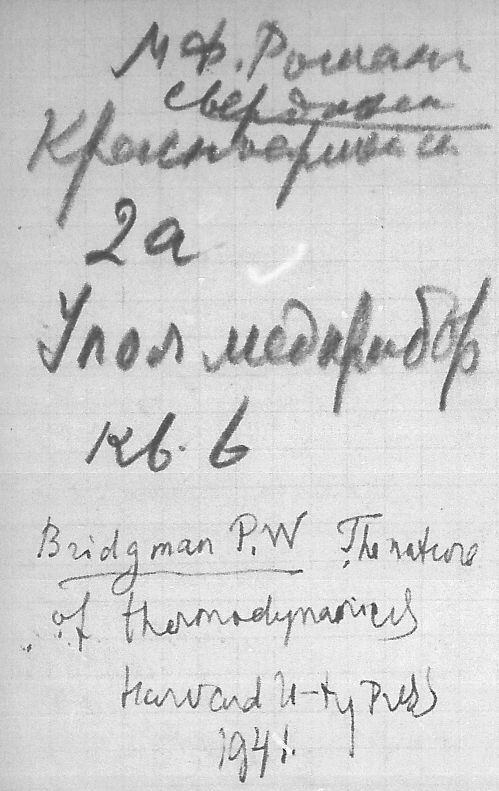 М.Ф. Романи
Свердлова
Красноармейская
2а
Упол медприбор
кв. 6
Bridgman P.W The nature
of thermodynamics
Harvard U-ty Press
1941.